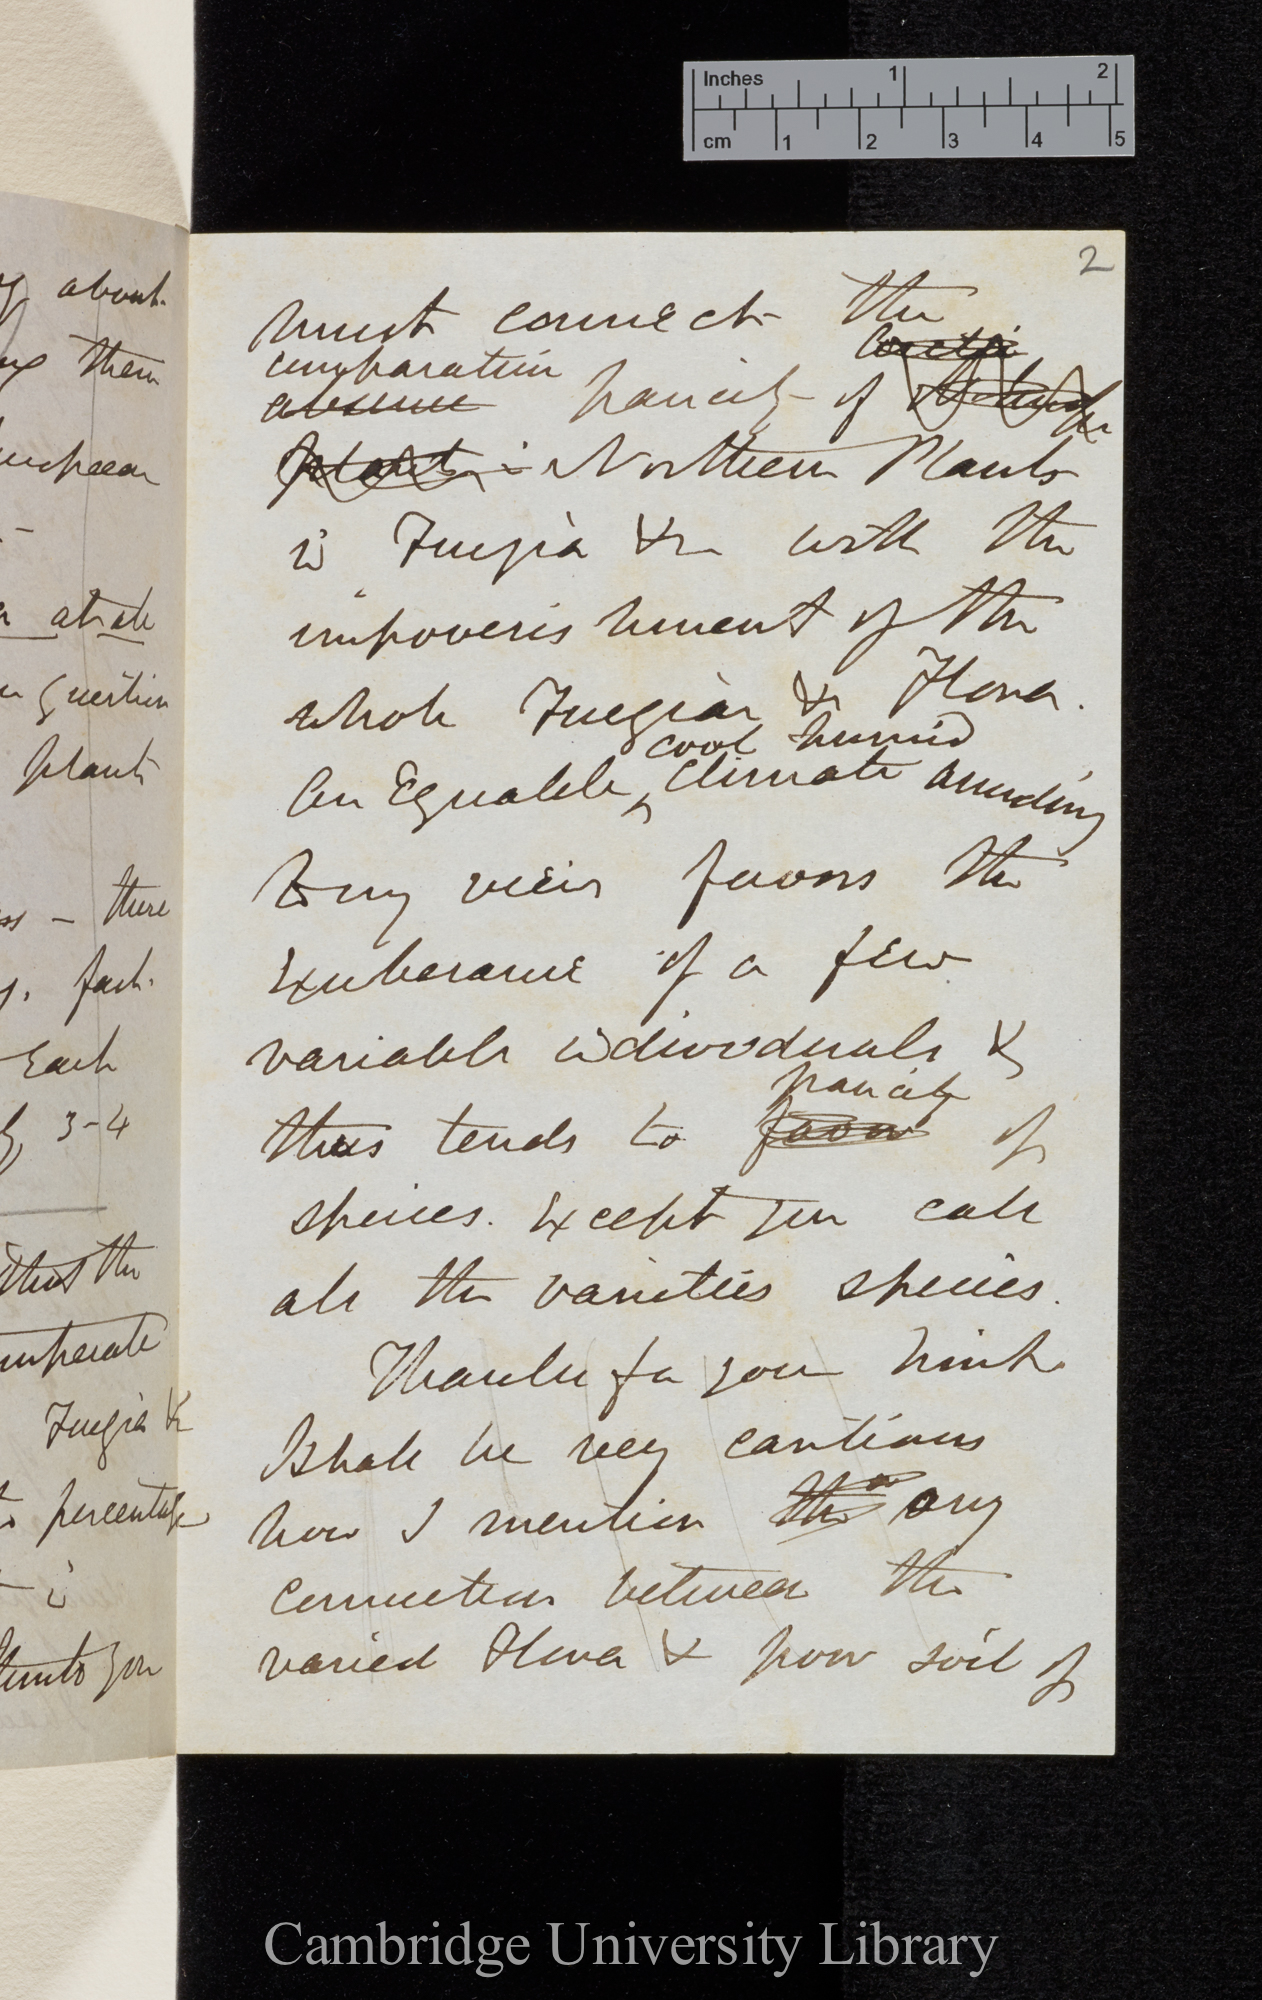 Inches 1 2
cm 1 2 3 4 5
y about
them
European
-
at all
question
plants
ss - there
y. fact.
Each
3-4
that the
temperate
Fuegia &
percentage
in
you
2
must connect the
comparative
absence paucity of
plants in Northern Plants
in Fuegia &c with the
impoverishment of the
whole Fuegian &c Flora.
cool humid
An Equable ^ climate according
to my view favors the
Exuberance of a few
variable individuals &
paucity
thus tends to favor of
species. Except you call
all the varieties species.
Thanks for your hint.
I shall be very cautious
how I mention the any
connection between the
varied Flora & poor soil of
Cambridge University Library